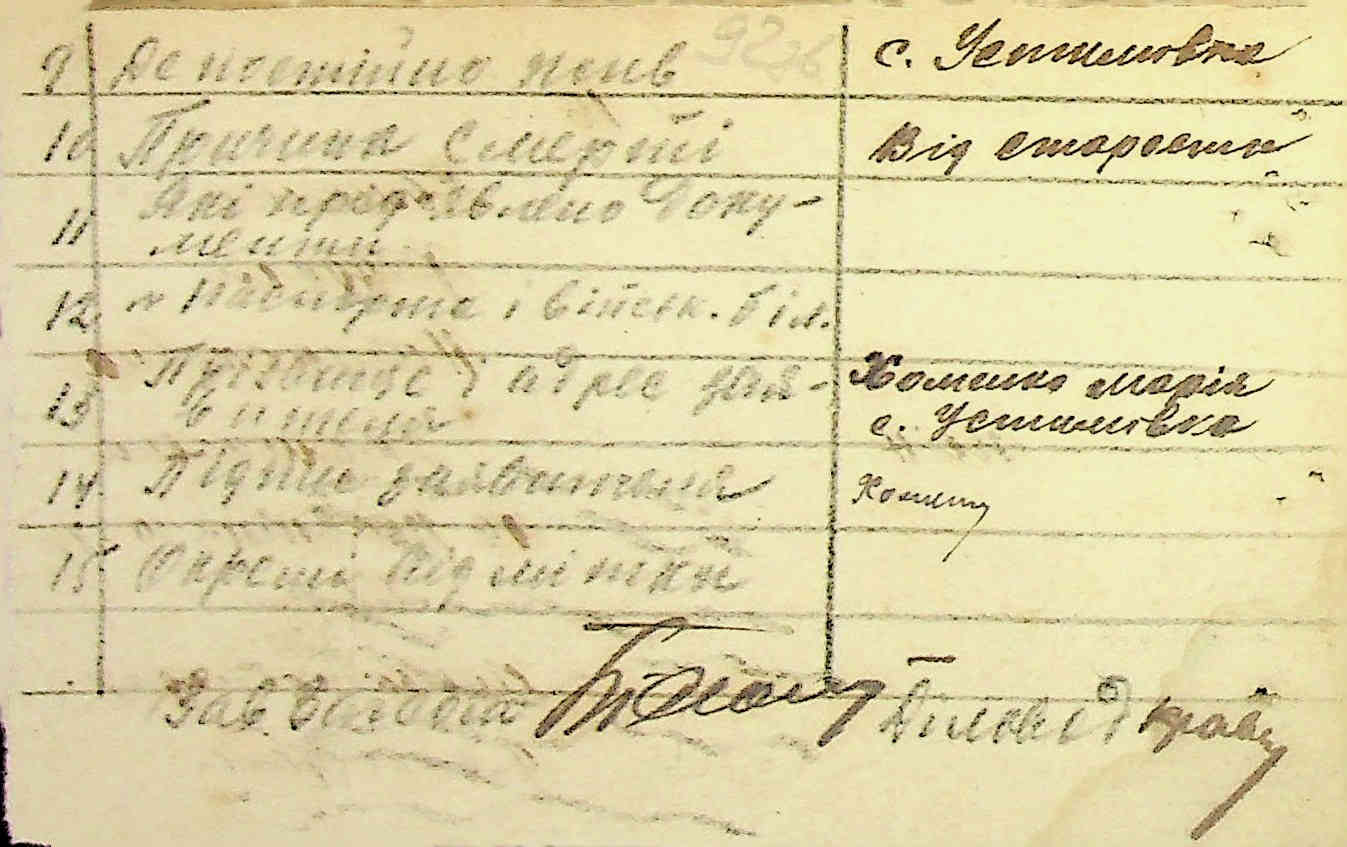 9 Де постійно жив с. Устимовка
10 Причина смерті Від старости
11 Які пред'явлено доку-
менти
12 п паспорта і військ. біл.
13 Прізвище і адрес зая- Хоменко Марія
вителя с. Устимовка
14 Підпис заявителя Хоменко
15 Окремі відмітки
Зав. Діловод